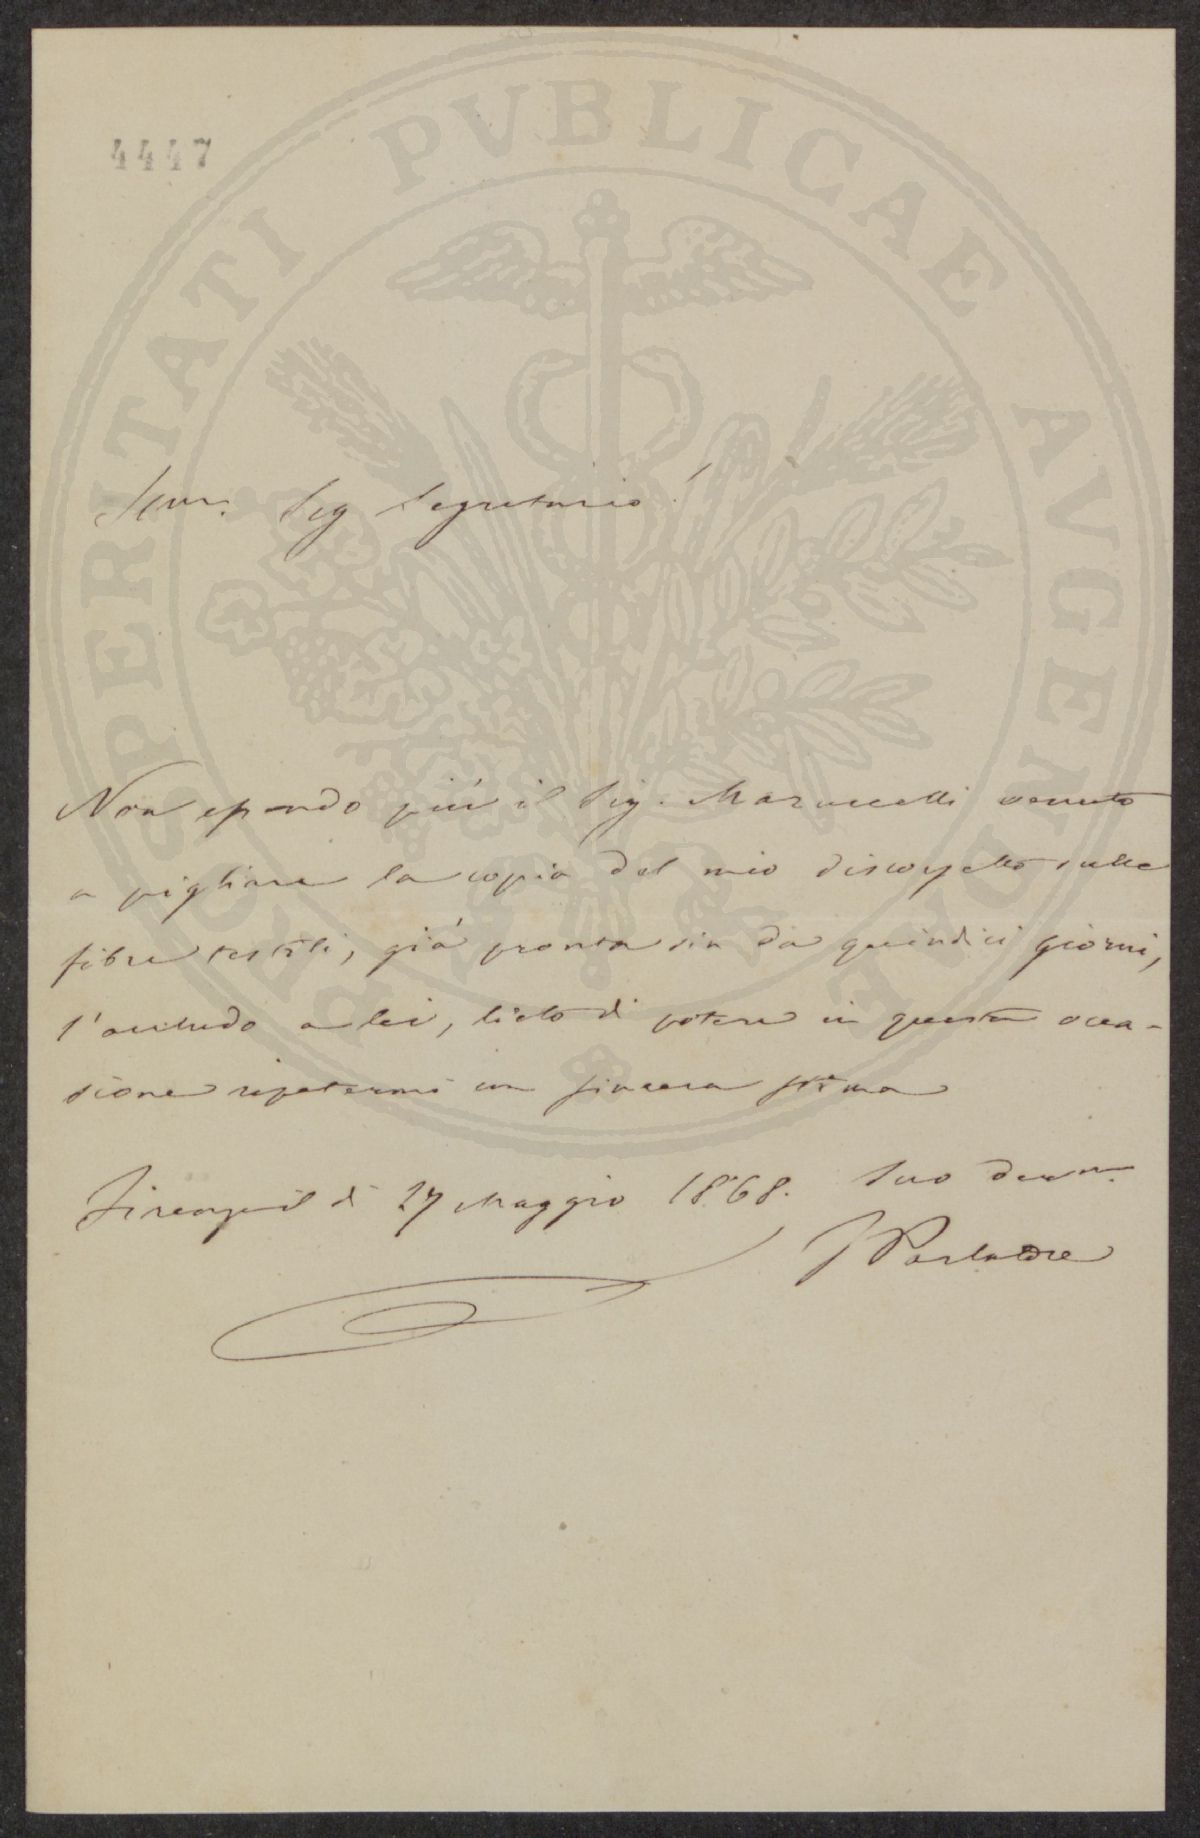 4447
PROSPERITATI PVBLICAE AVGENDAE
Sig. Segretario!
Non essendo più il Sig. Marucelli venuto
a pigliare la copia del mio discorsetto sulle
fibre tessili, già pronta sin da quindici giorni,
l'accludo a lei, lieto di potere in questa occa-
sione ripetermi con sincera stima
Firenze il dì 27 Maggio 1868. Suo dev.mo
F Parlatore